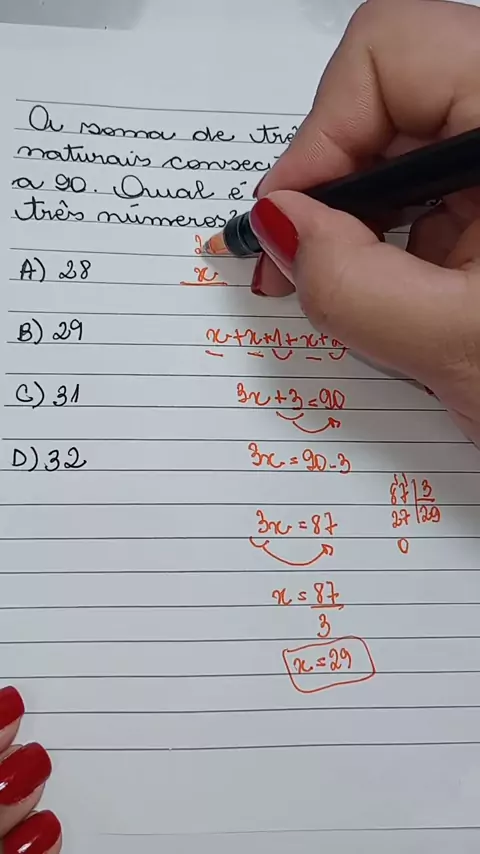 A soma de
naturais
a 90. Qual é
três números?
2
x
A) 28
B) 29
x+x+1+x+2
C) 31
3x+3=90
D) 32
3x=90-3
87 3
27 29
0
3x=87
x=87
3
x=29